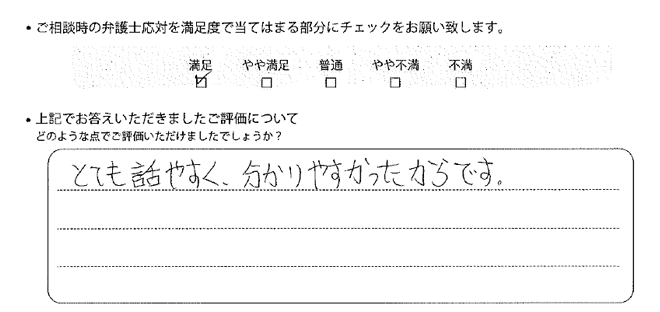 • ご相談時の弁護士応対を満足度で当てはまる部分にチェックをお願い致します。
満足 やや満足 普通 やや不満 不満
☑ □ □ □ □
• 上記でお答えいただきましたご評価について
どのような点でご評価いただけましたでしょうか？
とても話やすく、分かりやすかったからです。